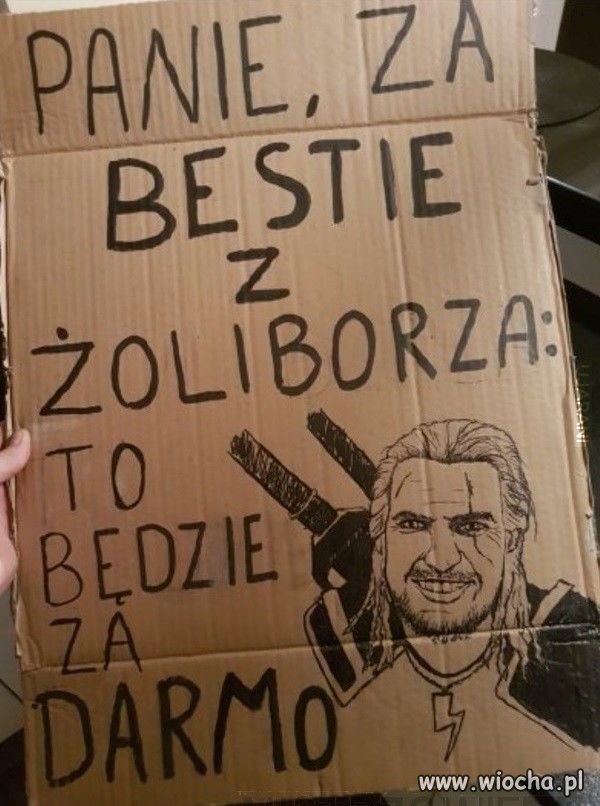 PANIE, ZA
BESTIE
Z
ŻOLIBORZA:
TO
BĘDZIE
ZA
DARMO
www.wiocha.pl